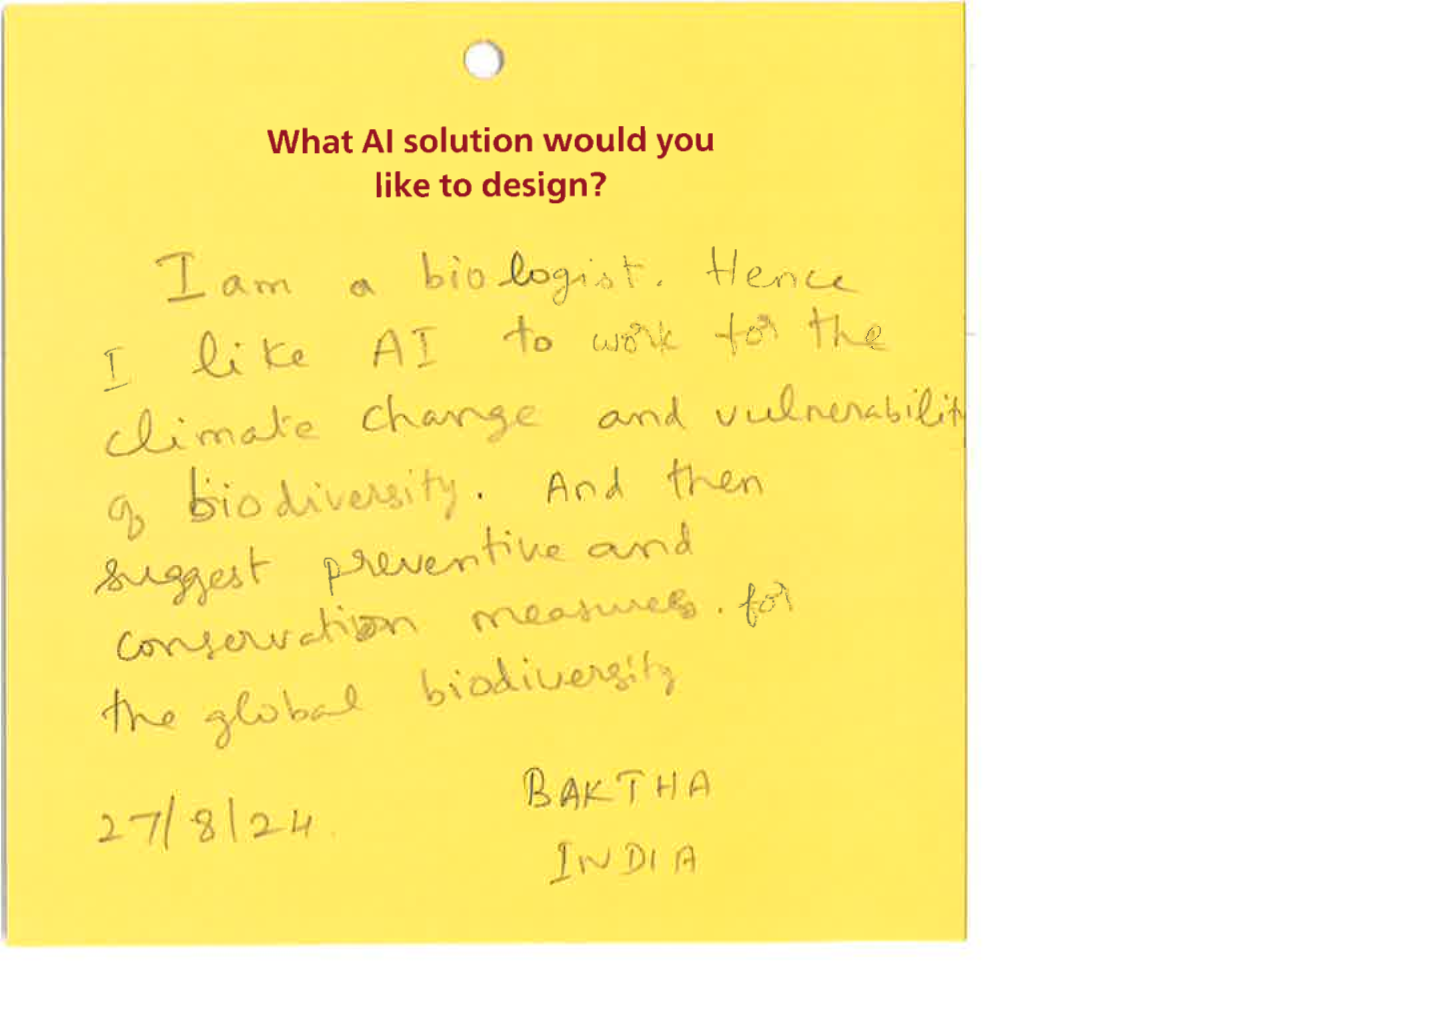 What AI solution would you
like to design?
I am a biologist. Hence
I like AI to work for the
climate change and vulnerability
of biodiversity. And then
suggest preventive and
conservation measures. for
the global biodiversity
27/8/24
BAKTHA
INDIA